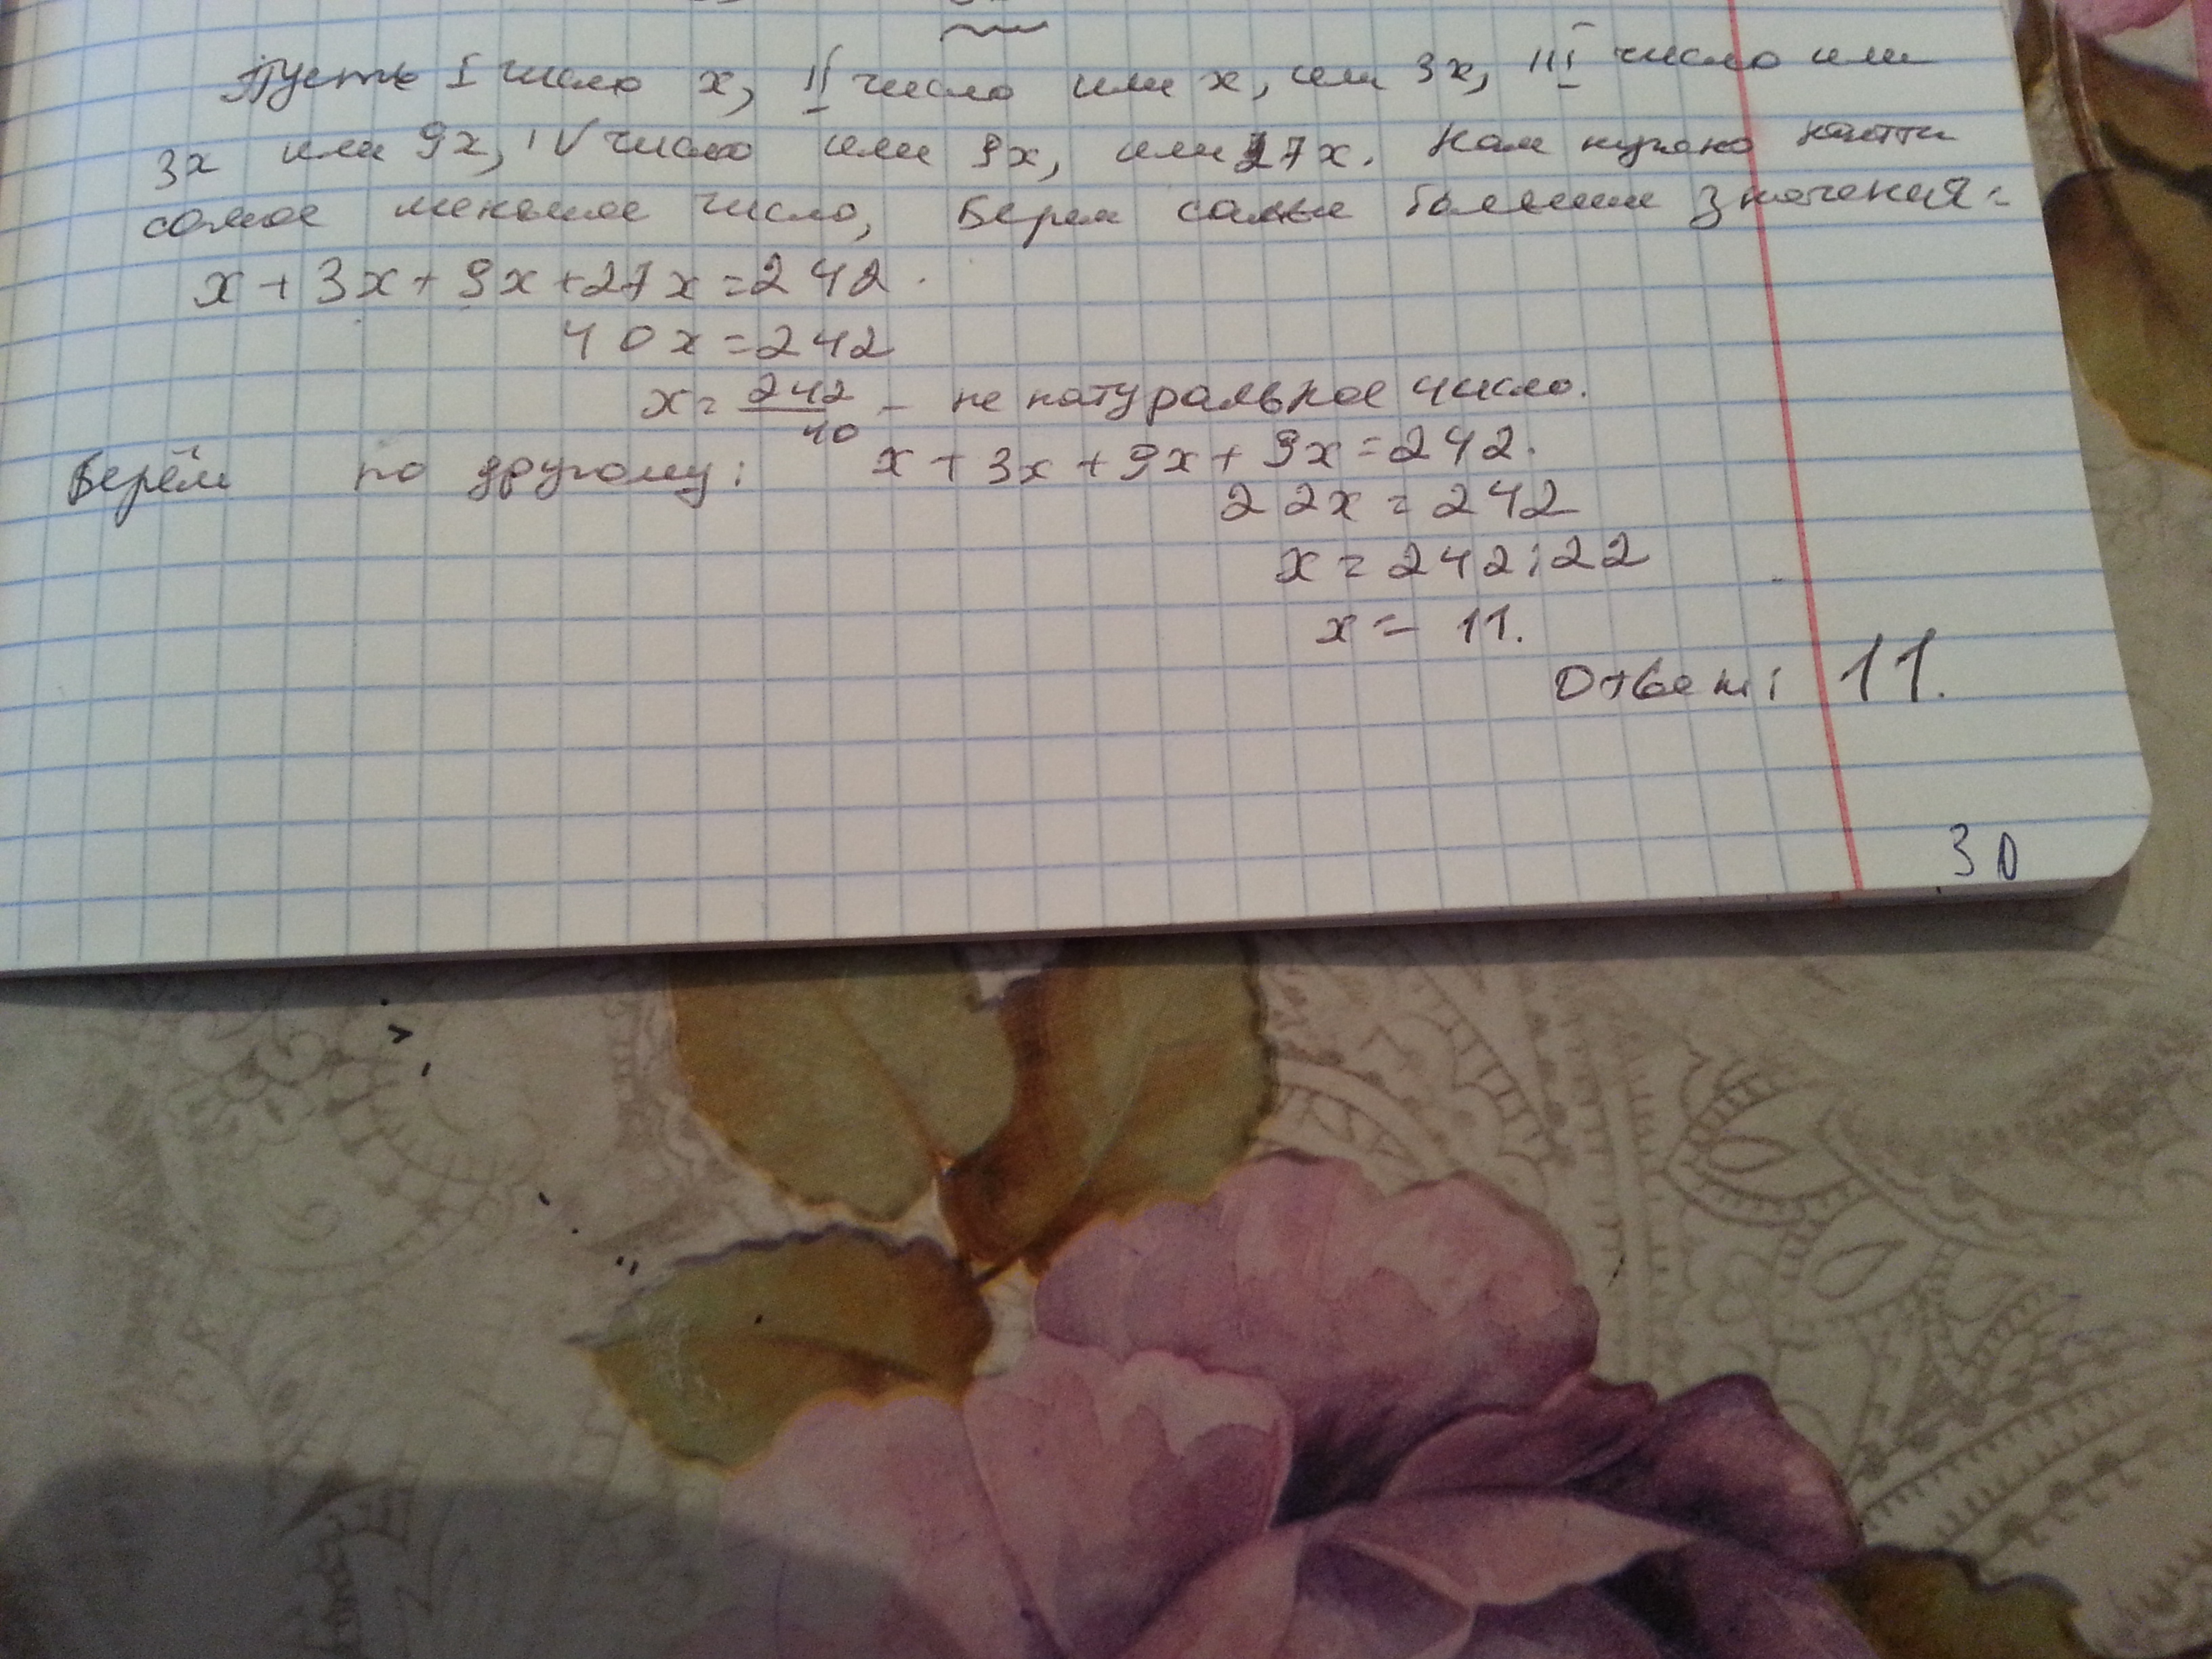 Пусть I число x, II число или x, или 3x, III число или
3x или 9x, IV число или 9x, или 27x. Нам нужно найти
самое меньшее число, Берем самые большие значения:
x + 3x + 9x + 27x = 242.
40x = 242
x = 242/40 - не натуральное число.
Берём по другому: x + 3x + 9x + 9x = 242.
22x = 242
x = 242:22
x = 11.
Ответ: 11.
30